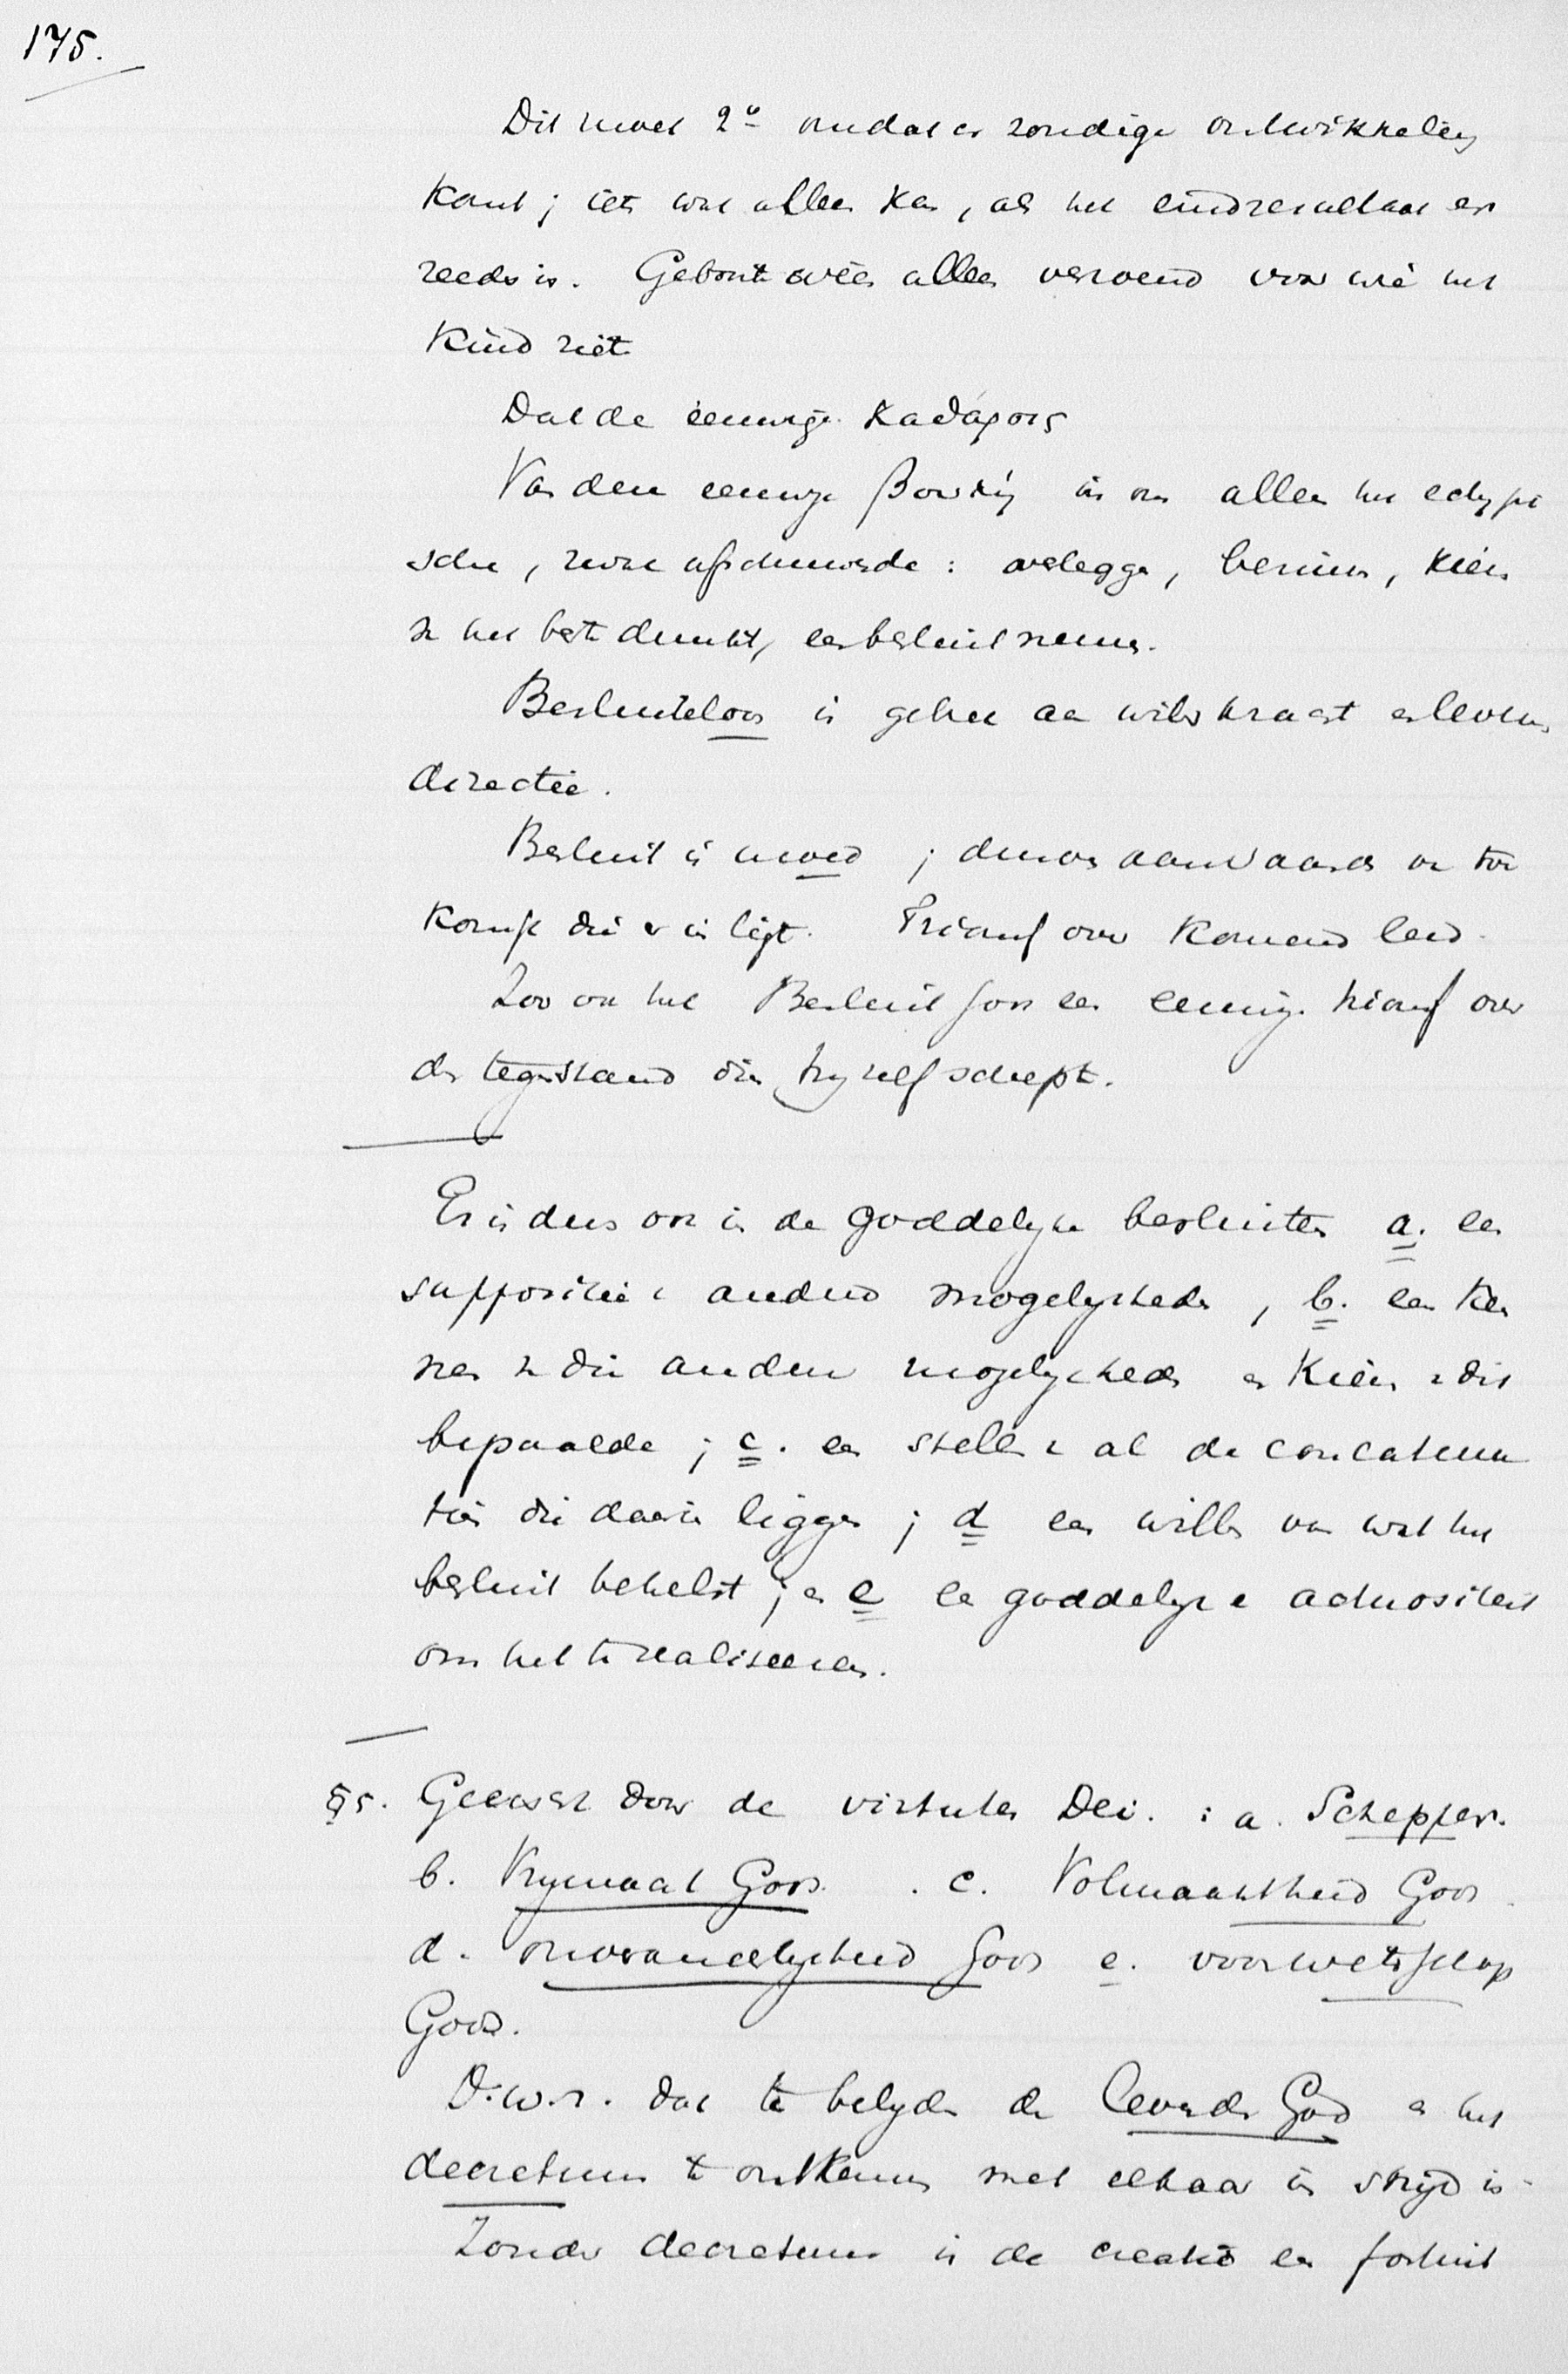 175.
Dit moet 2º omdat er zondige ontwikkeling
komt; iets wat alleen kan, als het eindresultaat er
reeds is. Geboorte weeën alleen verzoend voor wie het
kind ziet
Dat de eeuwige καθαρος
Van den eeuwige βουλή is ons alleen het ectypi
sche, zwak afschaduwende: overleggen, bezinnen, kiezen
z het best dunkt, een besluit nemen.
Besluiteloos is gebrek aan wilskracht en levens
directie.
Besluit is moed; durven aanvaarden van toe
komst die er in ligt. Triomf over komend leed.
Zoo ook het Besluit Gods een eeuwige triomf over
den tegenstand dien hij zelf schept.
Er is dus ook in de goddelijke besluiten a. een
suppositie v andere mogelijkheden, b. een ken
nen v die andere mogelijkheden en kiezen v dit
bepaalde; c. een stellen v al de concatena
ties die daarin liggen; d een willen van wat het
besluit behelst; en e een goddelijke actuositeit
om het te realiseeren.
§5. Geëischt door de virtutes Dei. : a. Schepper.
b. Vrijmacht Gods. c. Volmaaktheid Gods
d. onveranderlijkheid Gods e. voorwetenschap
Gods.
D.w.z. dat te belijden den levenden God en het
decretum te ontkennen met elkaar in strijd is.
Zonder decretum is de creatio een fortuit